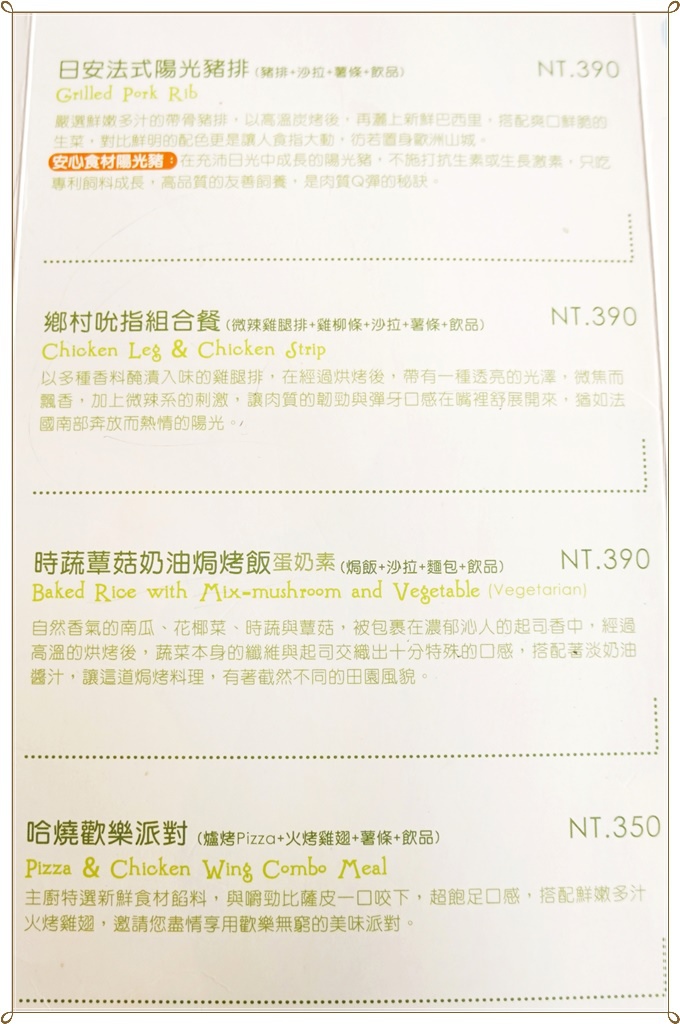 日安法式陽光豬排 (豬排+沙拉+薯條+飲品) NT.390
Grilled Pork Rib
嚴選鮮嫩多汁的帶骨豬排，以高溫炭烤後，再灑上新鮮巴西里，搭配爽口鮮脆的
生菜，對比鮮明的配色更是讓人食指大動，彷若置身歐洲山城。
安心食材陽光豬：在充沛日光中成長的陽光豬，不施打抗生素或生長激素，只吃
專利飼料成長，高品質的友善飼養，是肉質Q彈的秘訣。
鄉村吮指組合餐 (微辣雞腿排+雞柳條+沙拉+薯條+飲品) NT.390
Chicken Leg & Chicken Strip
以多種香料醃漬入味的雞腿排，在經過烘烤後，帶有一種透亮的光澤，微焦而
飄香，加上微辣系的刺激，讓肉質的韌勁與彈牙口感在嘴裡舒展開來，猶如法
國南部奔放而熱情的陽光。
時蔬蕈菇奶油焗烤飯 蛋奶素 (焗飯+沙拉+麵包+飲品) NT.390
Baked Rice with Mix-mushroom and Vegetable (Vegetarian)
自然香氣的南瓜、花椰菜、時蔬與蕈菇，被包裹在濃郁沁人的起司香中，經過
高溫的烘烤後，蔬菜本身的纖維與起司交織出十分特殊的口感，搭配著淡奶油
醬汁，讓這道焗烤料理，有著截然不同的田園風貌。
哈燒歡樂派對 (爐烤Pizza+火烤雞翅+薯條+飲品) NT.350
Pizza & Chicken Wing Combo Meal
主廚特選新鮮食材餡料，與嚼勁比薩皮一口咬下，超飽足口感，搭配鮮嫩多汁
火烤雞翅，邀請您盡情享用歡樂無窮的美味派對。